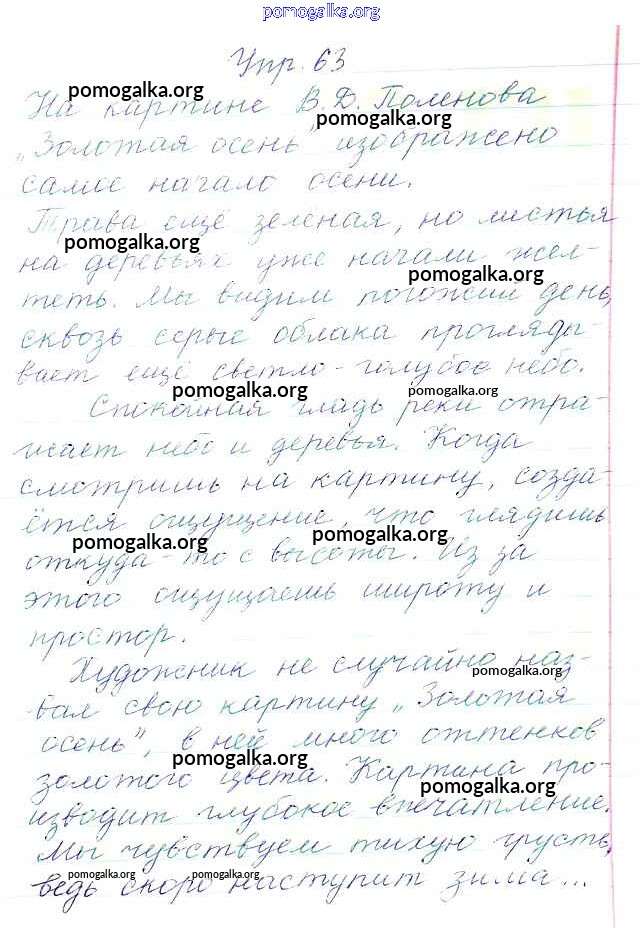 pomogalka.org
Упр. 63
pomogalka.org
На картине В.Д. Поленова
pomogalka.org
„Золотая осень" изображено
самое начало осени.
Трава ещё зелёная, но листья
pomogalka.org
на деревьях уже начали жел-
pomogalka.org
теть. Мы видим погожий день,
сквозь серые облака прогляды-
вает ещё светло-голубое небо.
pomogalka.org pomogalka.org
Спокойная гладь реки отра-
жает небо и деревья. Когда
смотришь на картину, созда-
ётся ощущение, что глядишь
pomogalka.org pomogalka.org
откуда-то с высоты. Из за
этого ощущаешь широту и
простор.
Художник не случайно наз-
pomogalka.org
вал свою картину „Золотая
осень", в ней много оттенков
pomogalka.org
золотого цвета. Картина про-
pomogalka.org
изводит глубокое впечатление.
Мы чувствуем тихую грусть,
pomogalka.org pomogalka.org
ведь скоро наступит зима...